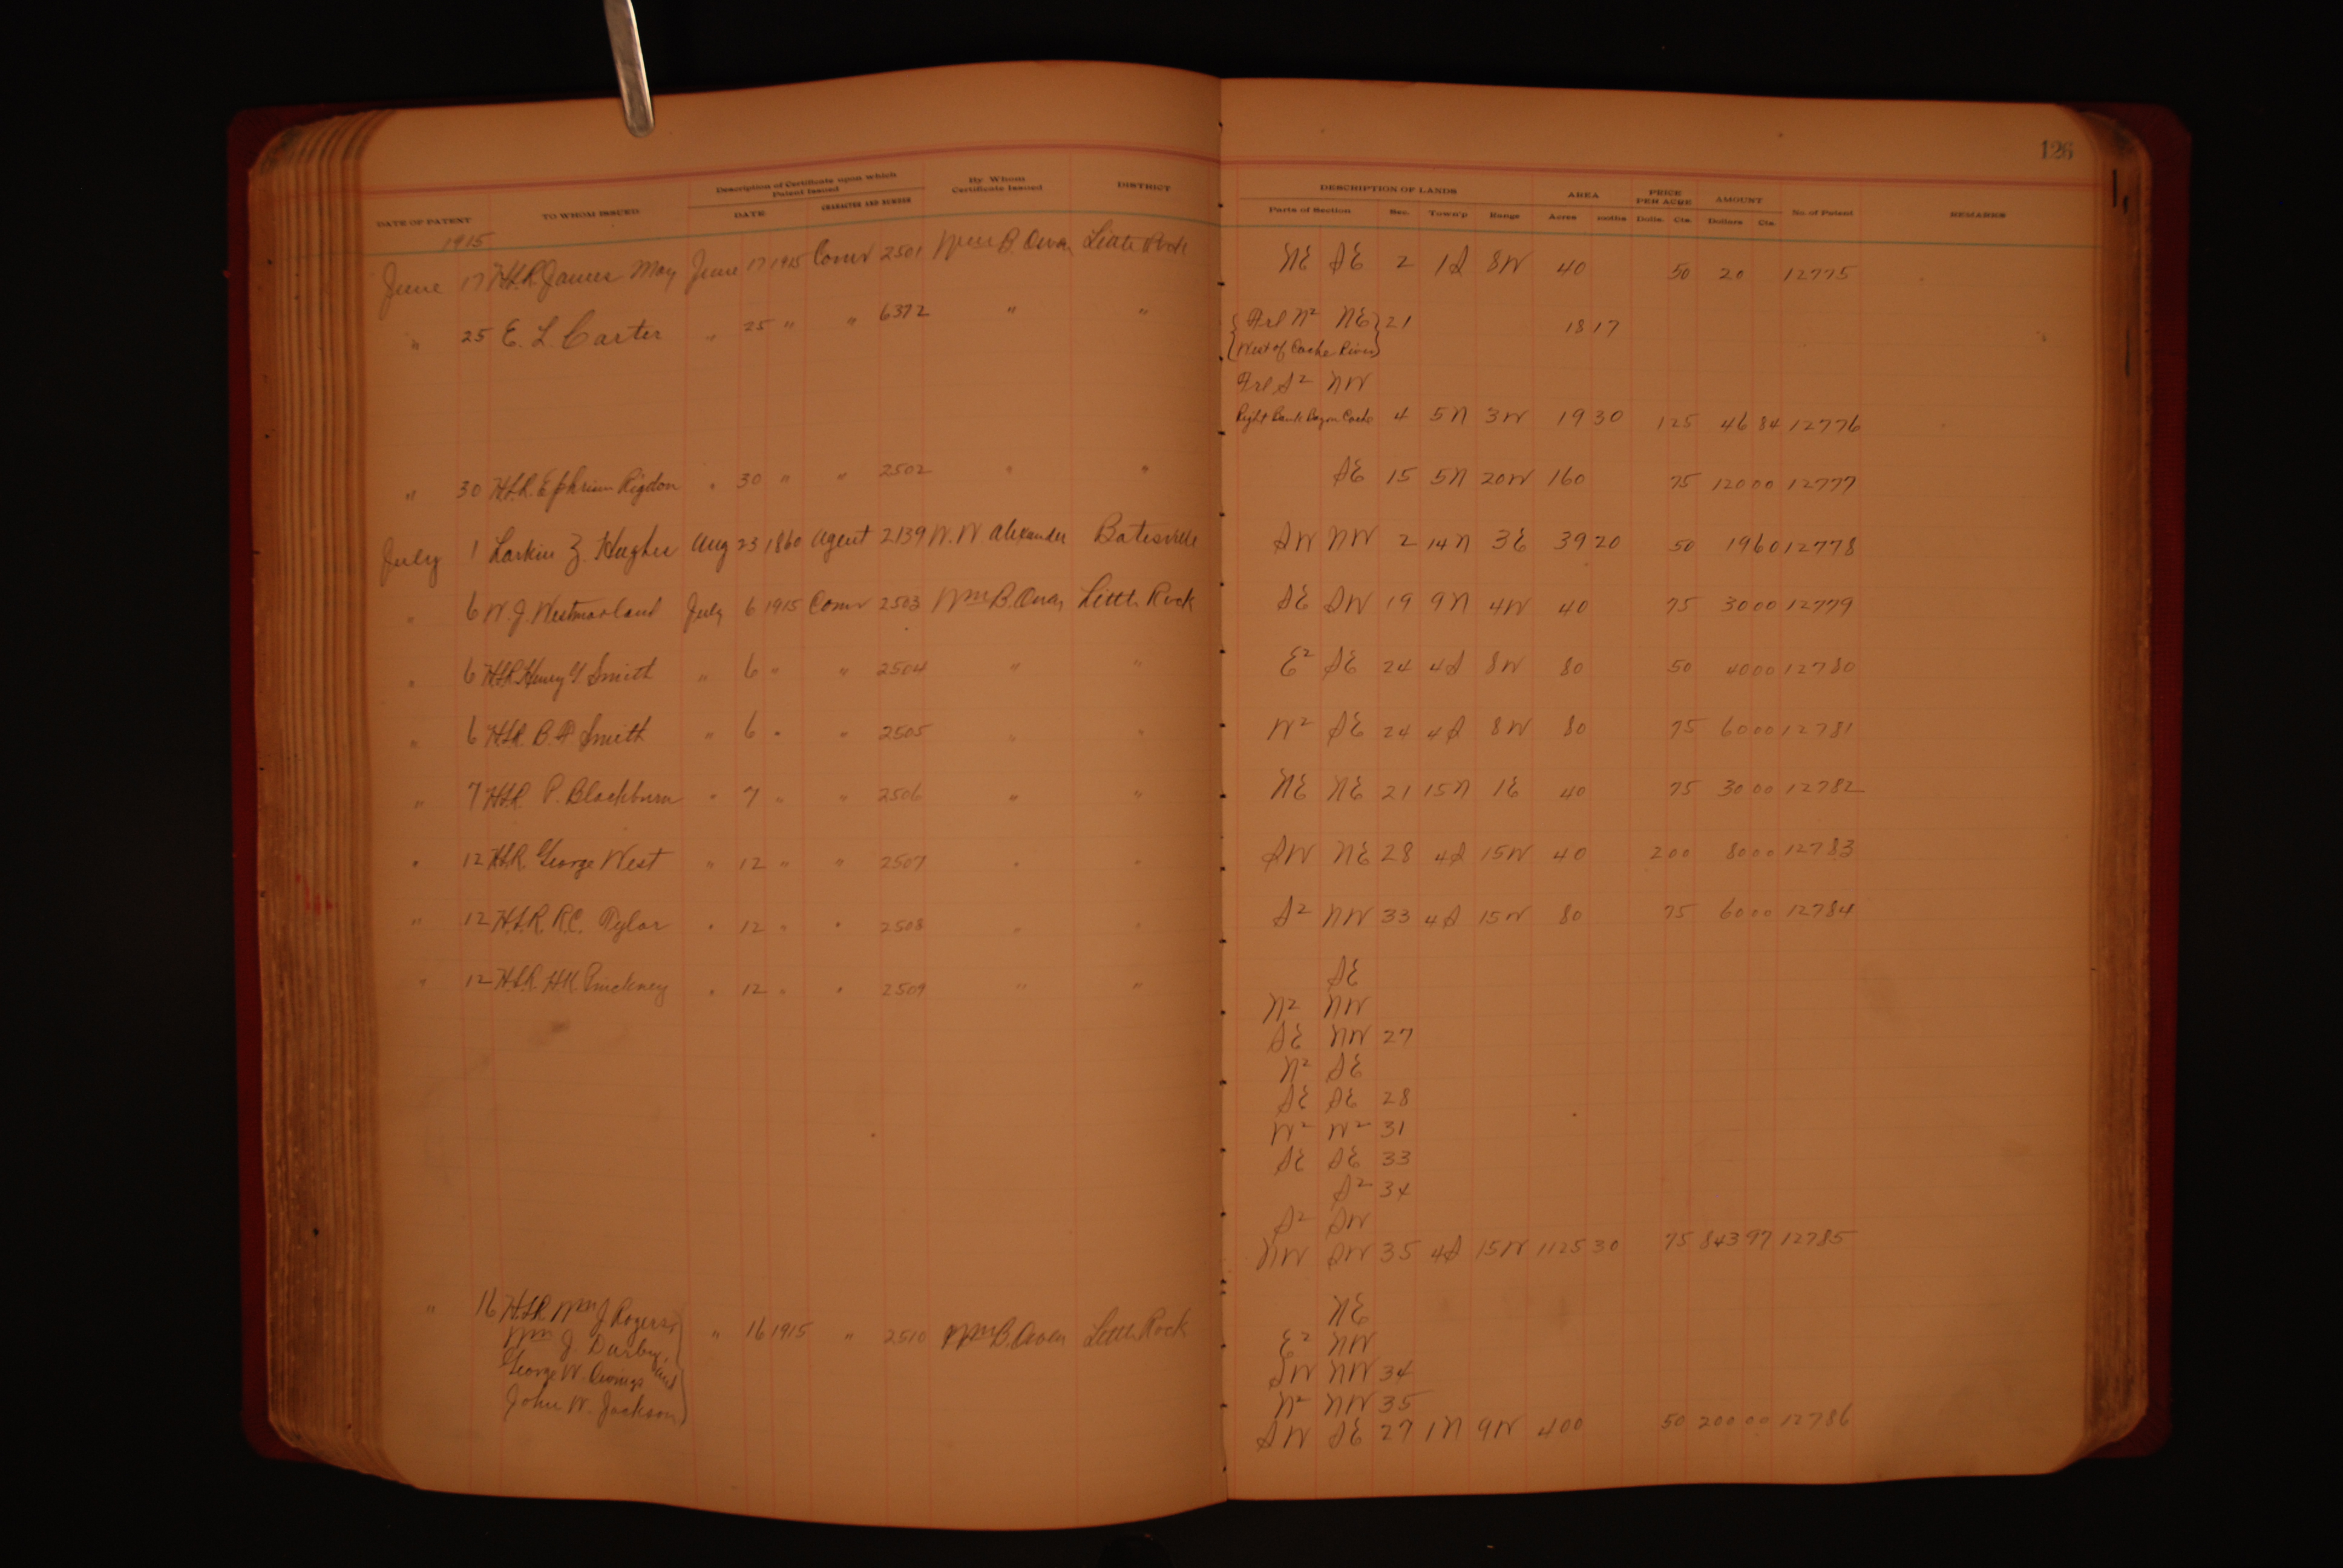 126
DATE OF PATENT TO WHOM ISSUED Description of Certificate upon which Patent Issued DATE CHARACTER AND NUMBER By Whom Certificate Issued DISTRICT DESCRIPTION OF LANDS Parts of Section Sec. Town'p Range AREA Acres PRICE PER ACRE Dolls. Cts. AMOUNT Dollars Cts. No. of Patent REMARKS
1915
June 17 H.L.R. James May June 17 1915 Comr 2501 Wm B. Owen Little Rock NE SE 2 1S 8W 40 50 20 12775
" 25 E. L. Carter " 25 " " 6372 " " Frl N2 NE 21 18 17
West of Cache River
Frl S2 NW
Right Bank Bayou Cache 4 5N 3W 19 30 125 46 84 12776
" 30 H.L.R. Ephriam Rigdon " 30 " " 2502 " " SE 15 5N 20W 160 75 120 00 12777
July 1 Larkin Z. Hughes Aug 23 1860 Agent 2139 W. W. Alexander Batesville SW NW 2 14N 3E 39 20 50 19 60 12778
" 6 W. J. Westmorland July 6 1915 Comr 2503 Wm B. Owen Little Rock SE SW 19 9N 4W 40 75 30 00 12779
" 6 H.L.R. Henry Smith " 6 " " 2504 " " E2 SE 24 4S 8W 80 50 40 00 12780
" 6 H.L.R. B. Smith " 6 " " 2505 " " W2 SE 24 4S 8W 80 75 60 00 12781
" 7 H.L.R. P. Blackburn " 7 " " 2506 " " NE NE 21 15N 1E 40 75 30 00 12782
" 12 H.L.R. George West " 12 " " 2507 " " SW NE 28 4S 15W 40 2 00 80 00 12783
" 12 H.L.R. R.C. Tylar " 12 " " 2508 " " S2 NW 33 4S 15W 80 75 60 00 12784
" 12 H.L.R. H.K. Pinckney " 12 " " 2509 " " SE
N2 NW
SE NW 27
N2 SE
SE SE 28
W2 W2 31
SE SE 33
S2 34
S2 SW
NW SW 35 4S 15W 1125 30 75 843 97 12785
" 16 H.L.R. Wm J Rogers, " 16 1915 " 2510 Wm B. Owen Little Rock NE
Wm J. Darby, E2 NW
George W. and SW NW 34
John W. Jackson N2 NW 35
SW SE 27 1N 9W 400 50 200 00 12786